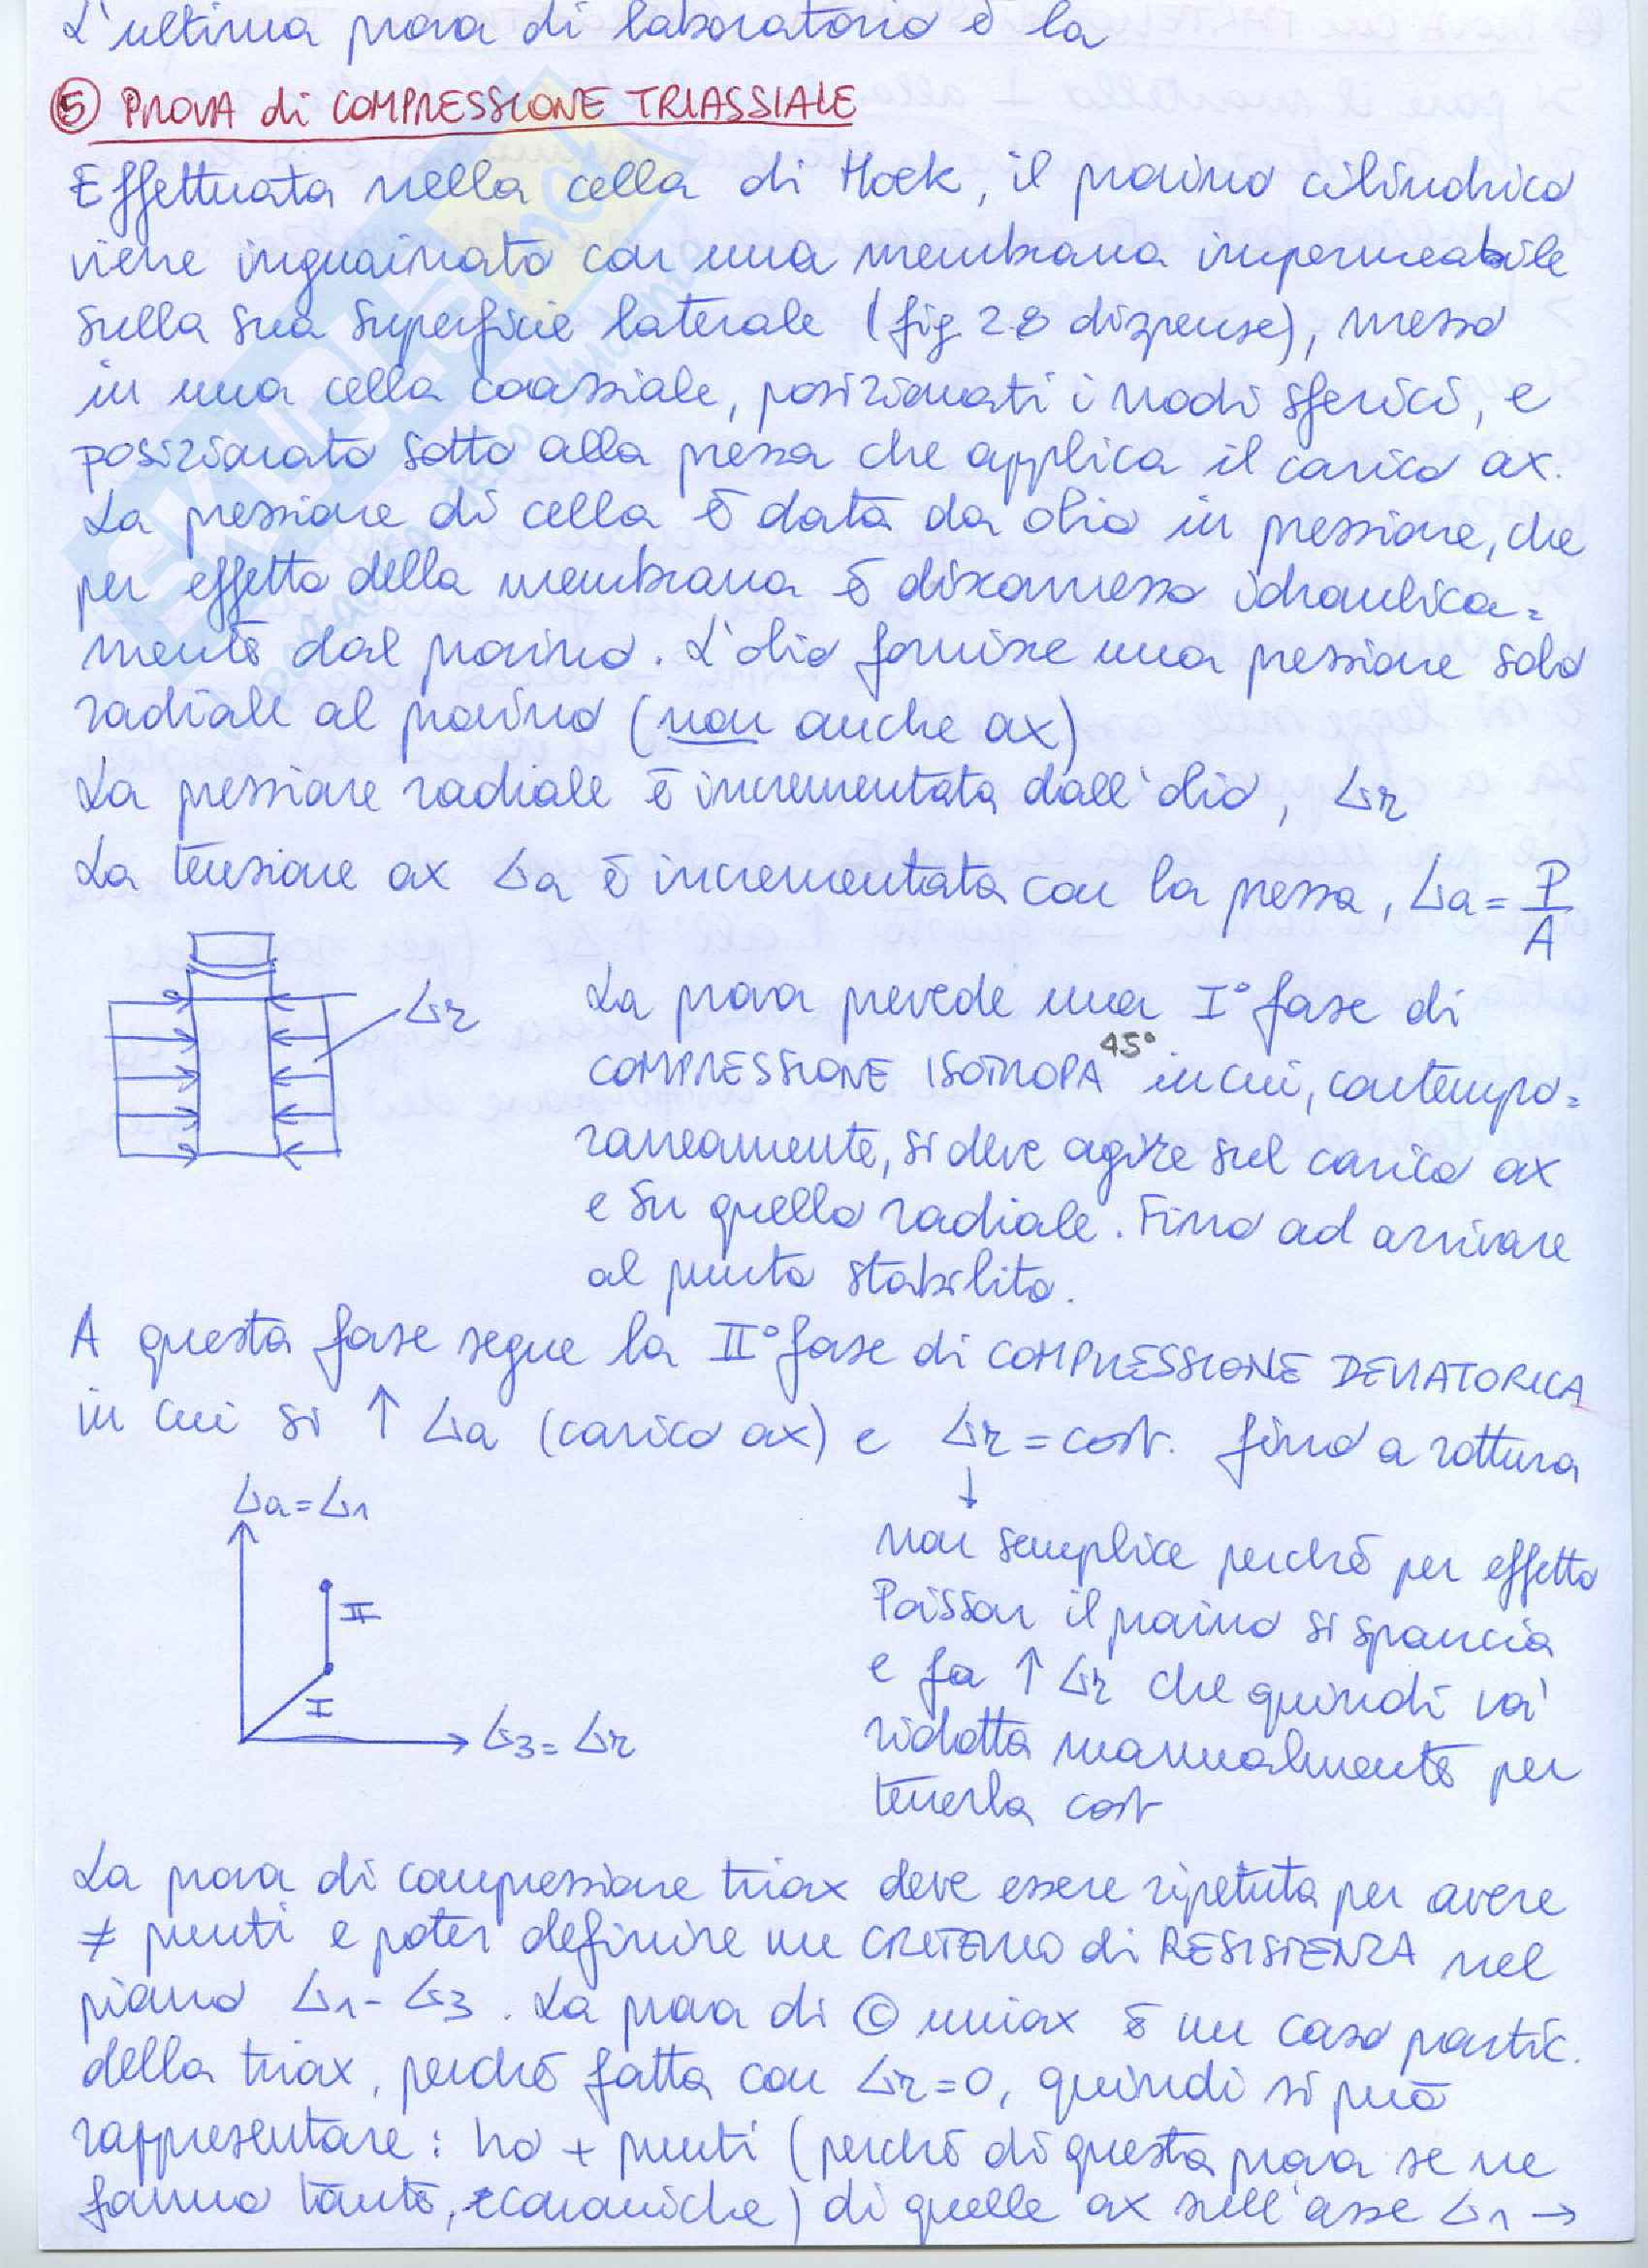 L'ultima prova di laboratorio è la
⑤ PROVA di COMPRESSIONE TRIASSIALE
Effettuata nella cella di Hoek, il provino cilindrico
viene inguainato con una membrana impermeabile
sulla sua superficie laterale (fig 2.8 dispense), messo
in una cella coassiale, posizionati i nodi sferici, e
posizionato sotto alla pressa che applica il carico ax.
La pressione di cella è data da olio in pressione, che
per effetto della membrana è disconnesso idraulica=
mente dal provino. L'olio fornisce una pressione solo
radiale al provino (non anche ax)
La pressione radiale è incrementata dall'olio, σr
La tensione ax σa è incrementata con la pressa, σa = P/A
σr
La prova prevede una I° fase di
COMPRESSIONE ISOTROPA 45° in cui, contempo=
raneamente, si deve agire sul carico ax
e su quello radiale. Fino ad arrivare
al punto stabilito.
A questa fase segue la II° fase di COMPRESSIONE DEVIATORICA
in cui si ↑ σa (carico ax) e σr = cost. fino a rottura
↓
σa = σ1
II
I
σ3 = σr
non semplice perché per effetto
Poisson il provino si spancia
e fa ↑ σr che quindi va'
ridotta manualmente per
tenerla cost
La prova di compressione triax deve essere ripetuta per avere
≠ punti e poter definire un CRITERIO di RESISTENZA nel
piano σ1 - σ3. La prova di © uniax è un caso partic.
della triax, perché fatta con σr = 0, quindi si può
rappresentare: ho + punti (perché di questa prova se ne
fanno tante, economiche) di quelle ax sull'asse σ1 →